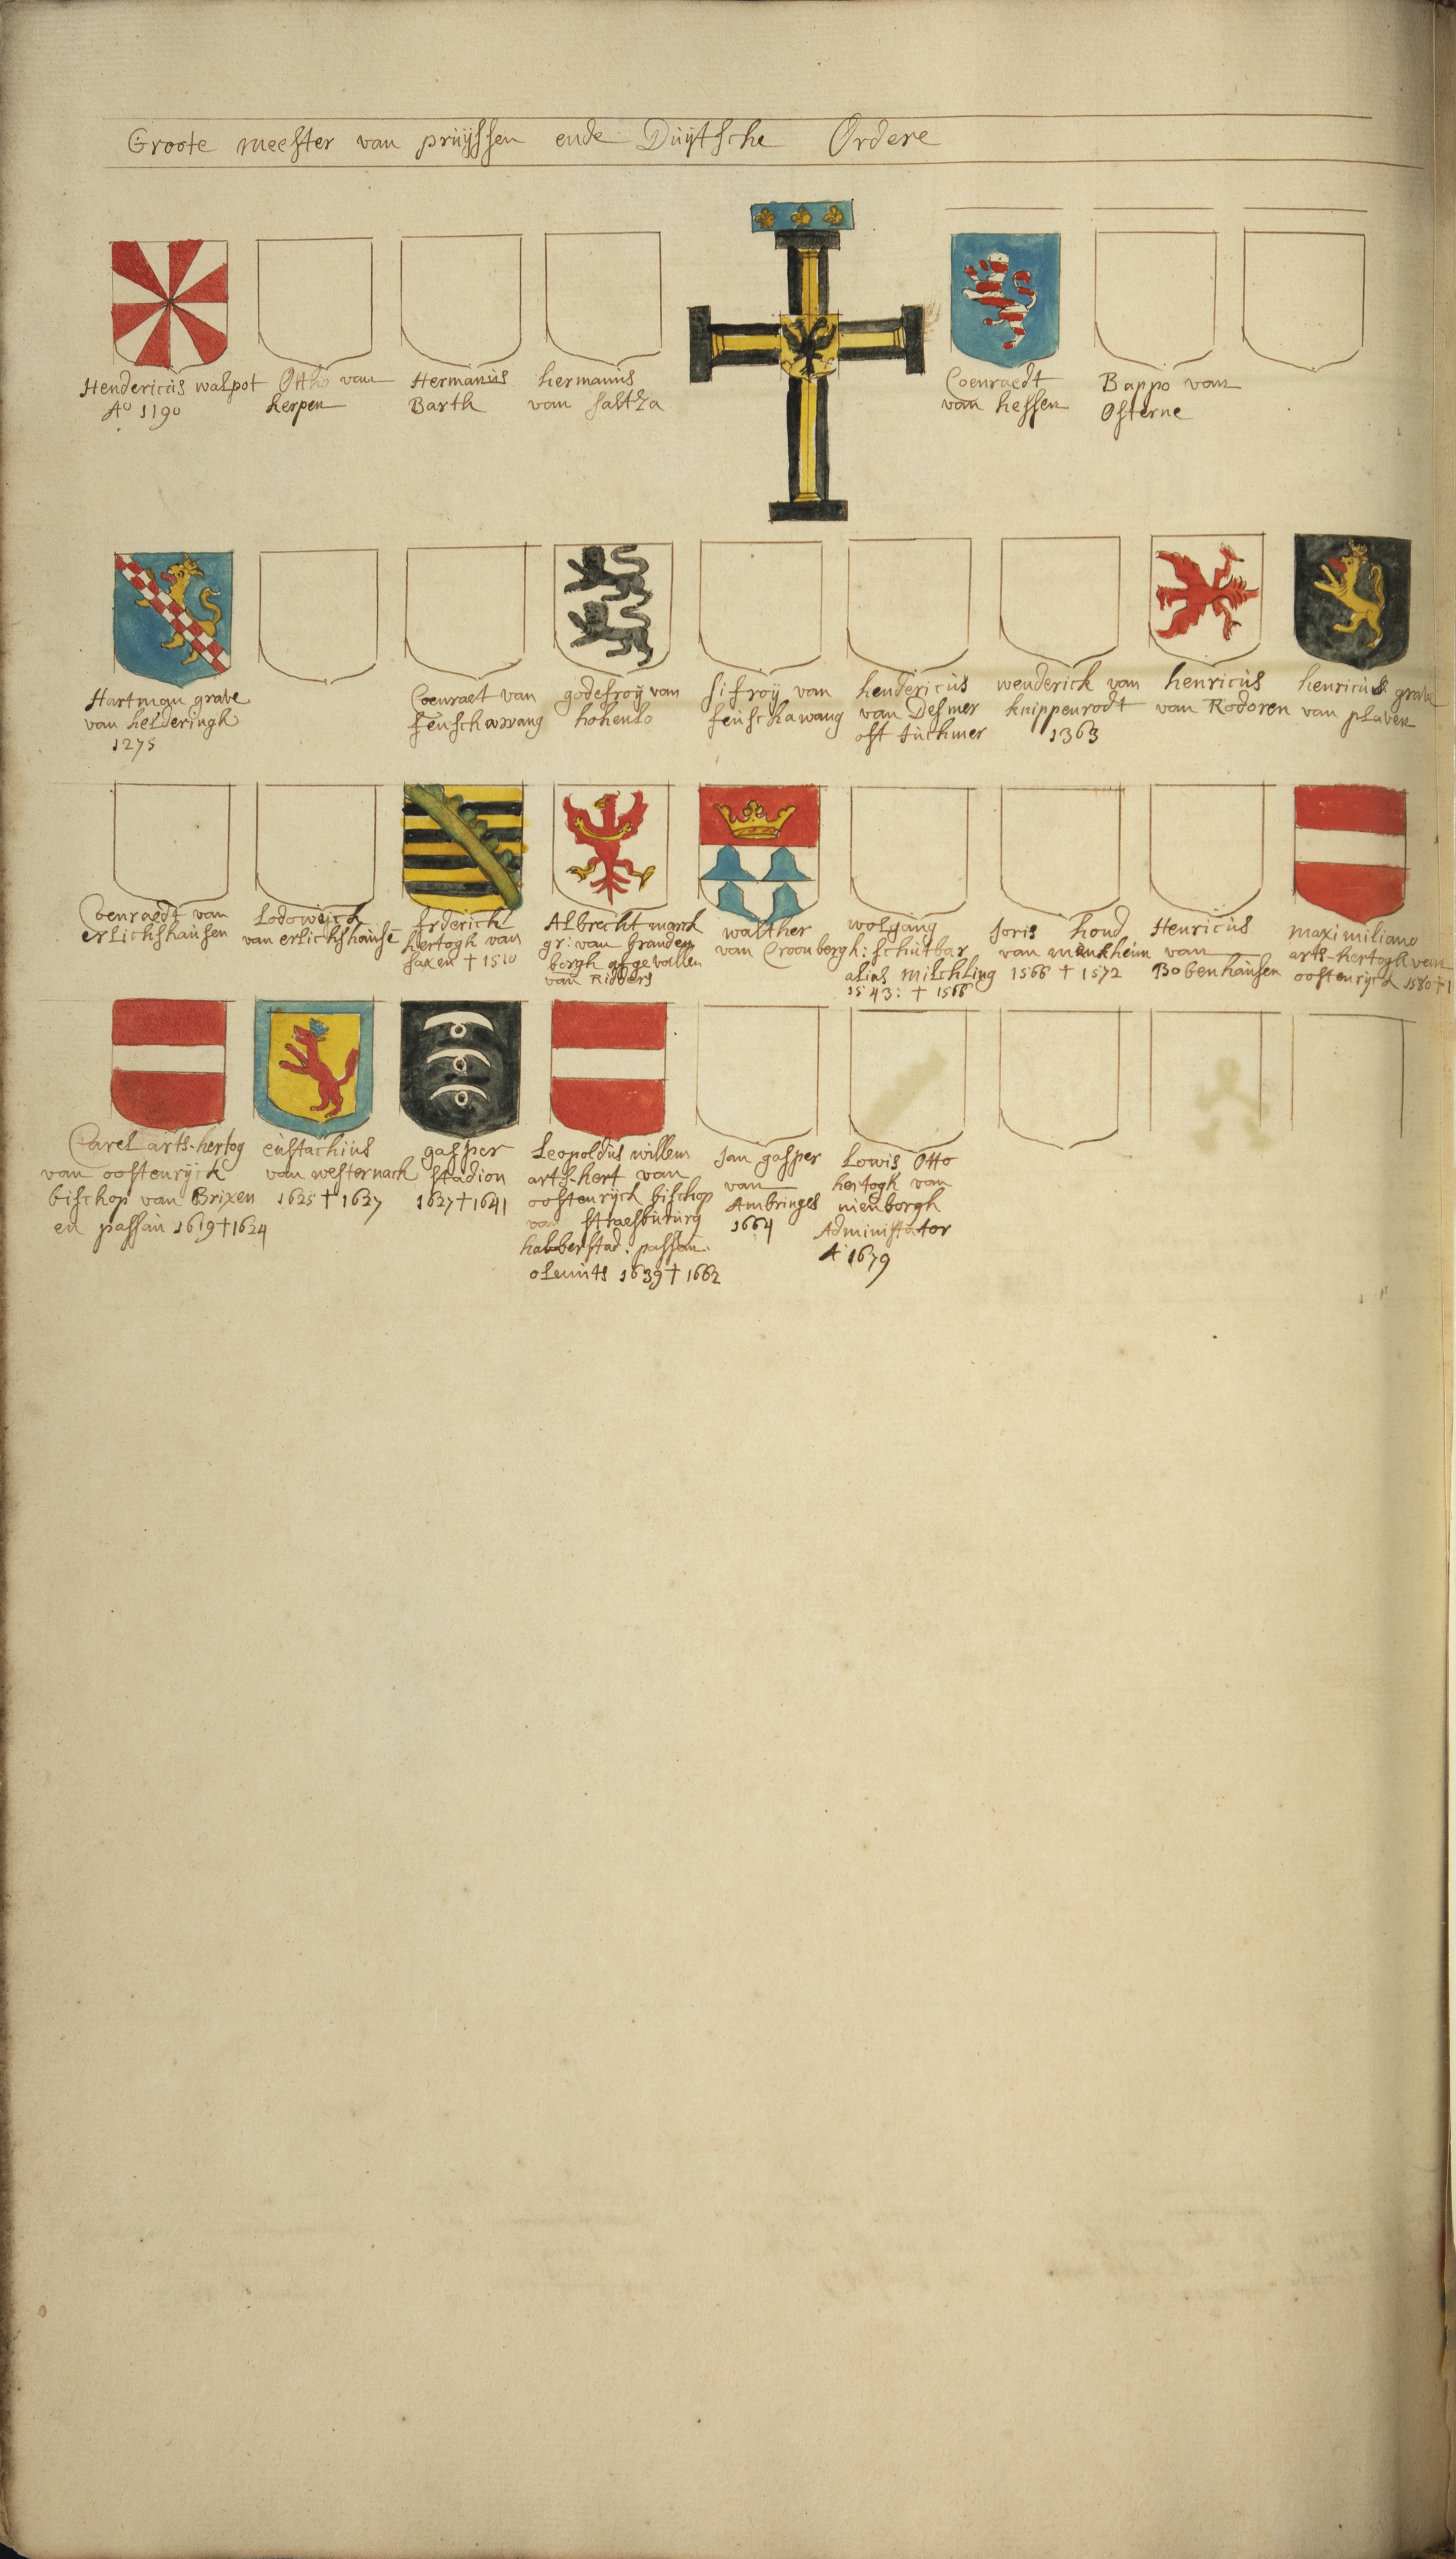 Groote meester van prüÿssen ende Duÿtsche Ordere
Hendericüs walpot
Aº 1190
Otho van
kerpen
Hermanüs
Barth
hermanüs
van saltza
Coenraedt
van hessen
Bappo van
Osterne
Hartman grave
van helderingh
1275
Coenraet van
feuschawang
godefroÿ van
hohenlo
sifroÿ van
feuschawang
hendericüs
van Desmer
oft tuchmer
wenderick van
knippenrodt
1363
henricüs
van Rodoren
henricüs grave
van plaven
Coenraedt van
erlichshaüsen
Lodowijck
van erlichshaüsē
frderick
hertogh van
saxen † 1510
Albrecht marck
gr: van branden
borgh afgevallen
van Ridders
walther
van Croonbergh:
wolgang
schütbar
alias milchling
1543: † 1566
Joris hond
van menkheim
1566 † 1572
Henricüs
van
Bobenhaüsen
maximiliano
arts-hertogh van
oostenrÿck 1580 †
Carel arts-hertog
van oostenrÿck
bischop van Brixen
en passau 1619 † 1624
eüstachiüs
van westernach
1625 † 1627
gasper
stadion
1627 † 1641
Leopoldüs willem
arts-hert van
oostenrÿck bischop
van straesbüürg
halberstad: passau:
olmüts 1639 † 1662
Jan gasper
van
Ambringes
1664
Lowis Otto
hertogh van
nienborgh
Administrator
Aº 1679